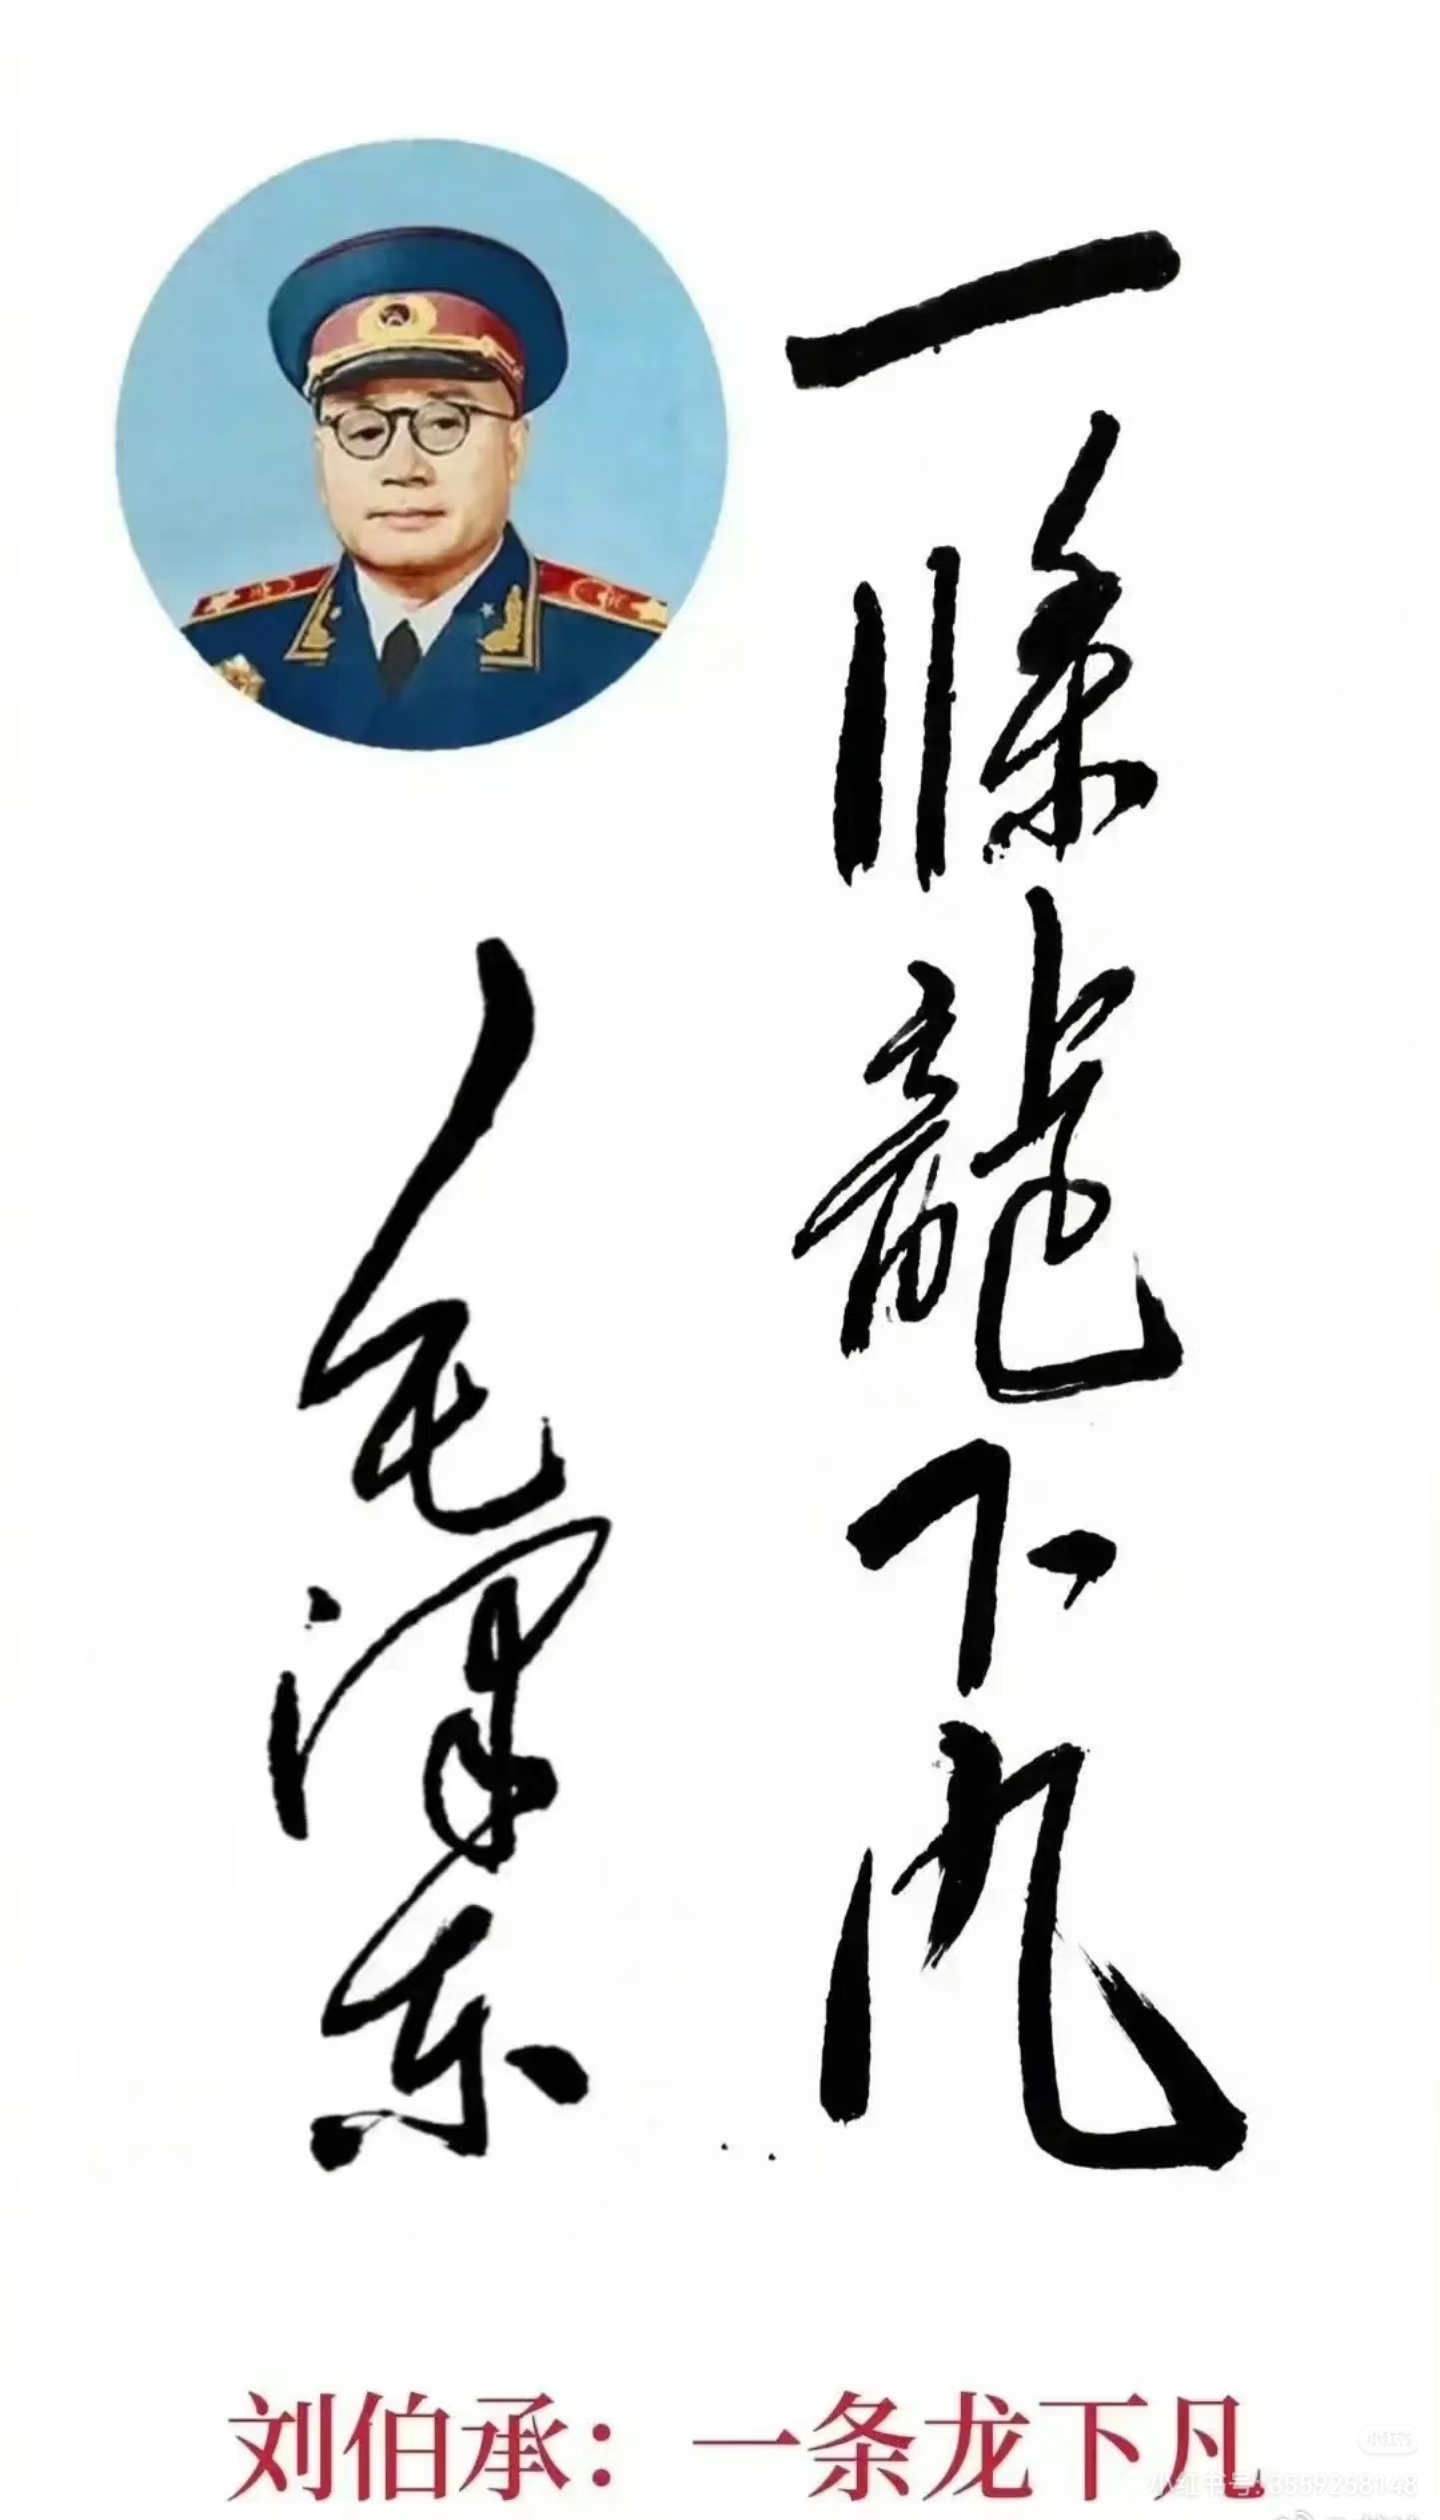 一條龍下凡
毛泽东
刘伯承：一条龙下凡
小红书
小红书号: 3559258148